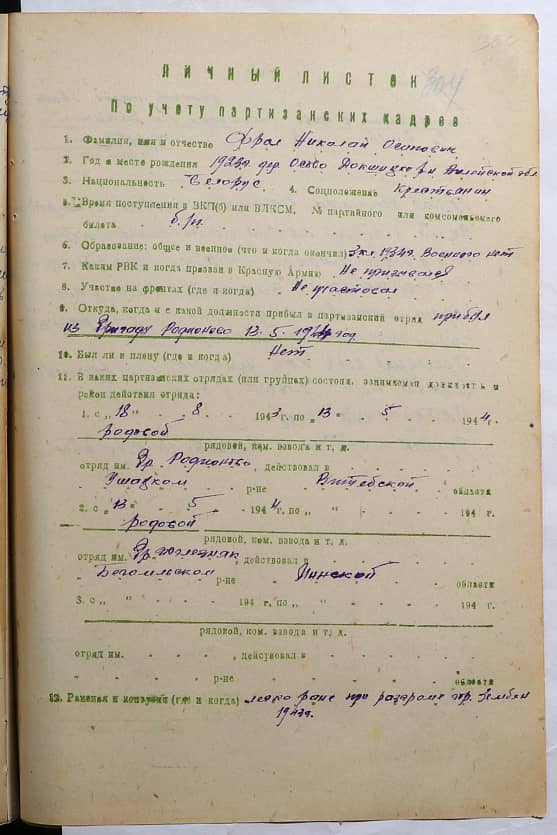 304
ЛИЧНЫЙ ЛИСТОК
По учету партизанских кадров
1. Фамилия, имя и отчество Фрол Николай Осипович
2. Год и место рождения 1923г. дер. Осово Докшицкого р-н Вилейской обл.
3. Национальность Белорус 4. Соцположение Крестьянин
5. Время поступления в ВКП(б) или ВЛКСМ, № партийного или комсомольского
билета б/п
6. Образование: общее и военное (что и когда окончил) 3 кл. 1934г. Военного нет
7. Каким РВК и когда призван в Красную Армию Не призывался
8. Участие на фронтах (где и когда) Не участвовал
9. Откуда, когда и с какой должности прибыл в партизанский отряд прибыл
из бригады Родионова 13. 5. 1944 год
10. Был ли в плену (где и когда) Нет
11. В каких партизанских отрядах (или группах) состоял, занимаемая должность и
район действия отряда:
1. с „18 " 8 1943 г. по „13 " 5 1944 г.
Рядовой
рядовой, ком. взвода и т. д.
отряд им. Бр. Родионова, действовал в
Ушацком р-не Витебской области
2. с „13 " 5 1944 г. по „ " 194 г.
Рядовой
рядовой, ком. взвода и т. д.
отряд им. Бр. Железняк, действовал в
Бегомльском р-не Минской области
3. с „ " 194 г. по „ " 194 г.
рядовой, ком. взвода и т. д.
отряд им. , действовал в
р-не области
12. Ранения и контузии (где и когда) легко ране при разгроме гр. Зембин
1943г.